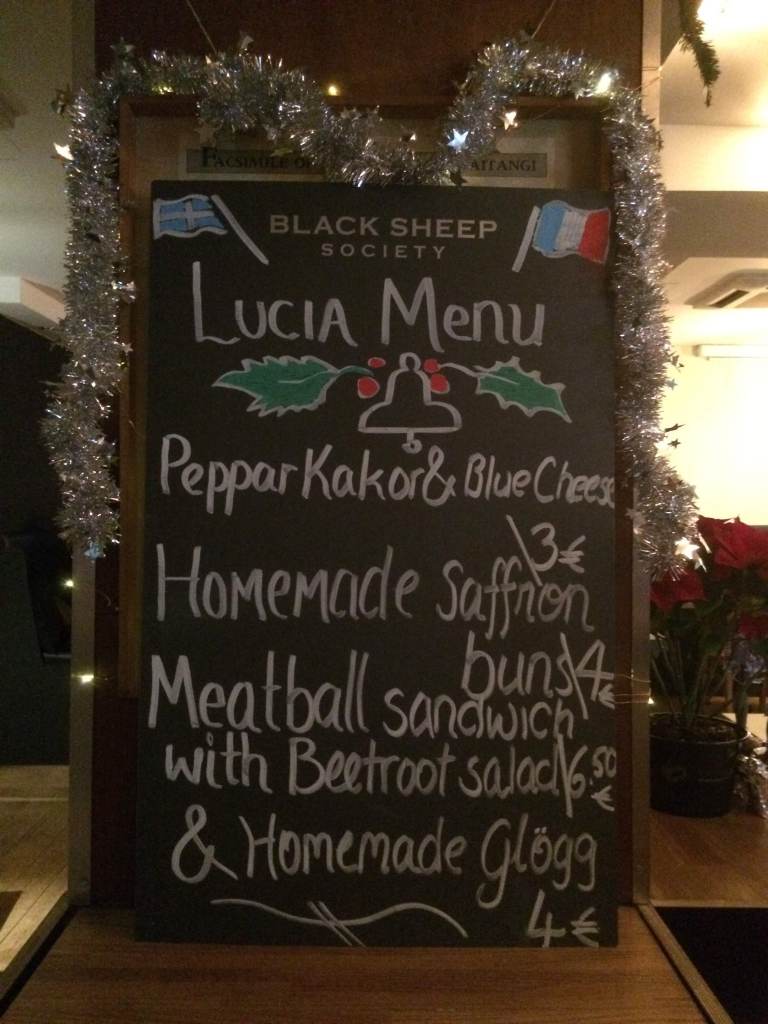 FACSIMILE O
AITANGI
BLACK SHEEP
SOCIETY
LUCIA Menu
Peppar Kakor & Blue Cheese
\3€
Homemade Saffron
buns\4€
Meatball sandwich
with Beetroot salad\6.50€
& Homemade Glögg
4€